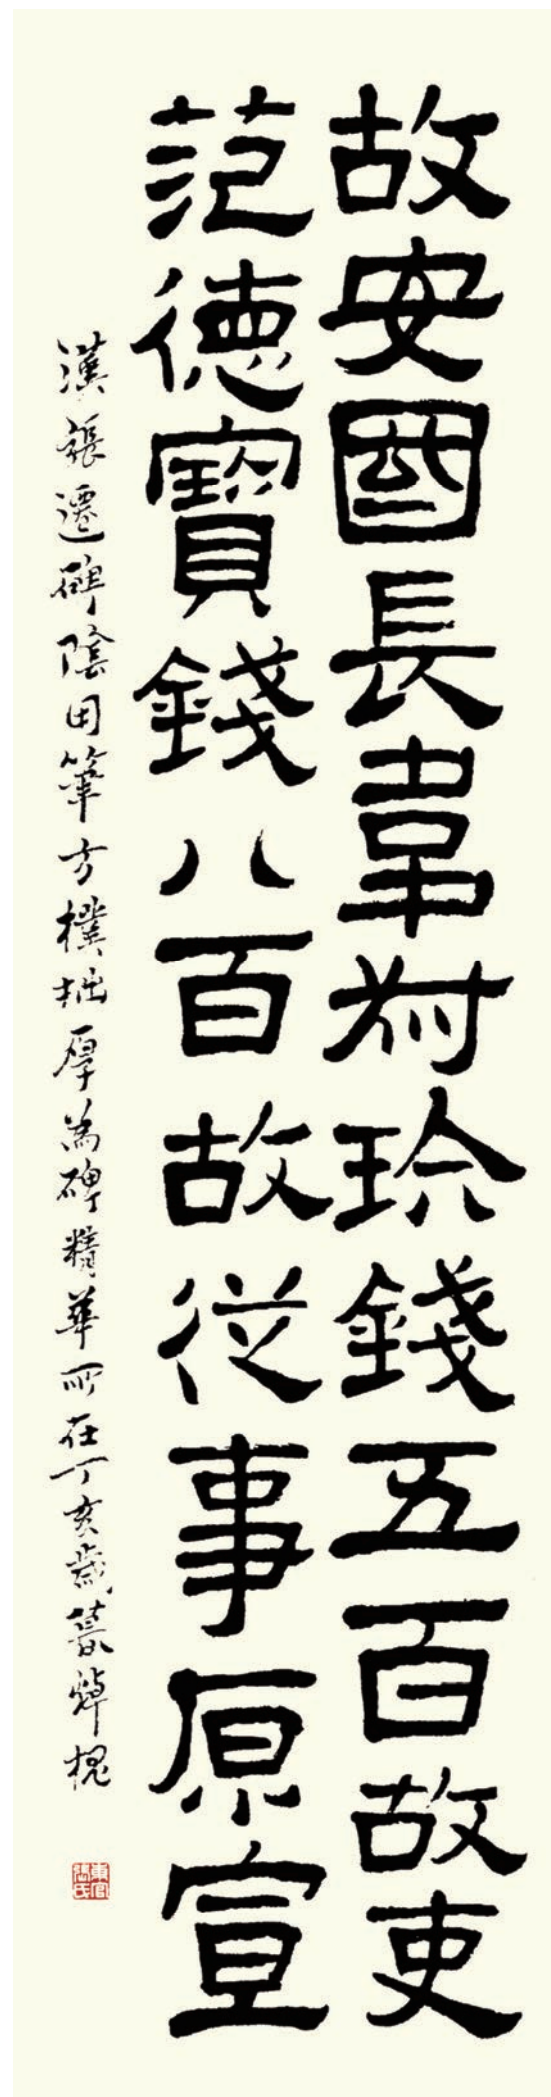 故安國長韋叔珍錢五百故吏
范德寶錢八百故從事原宣
漢張遷碑陰用筆方樸拙厚為碑精華所在丁亥歲暮焯槐